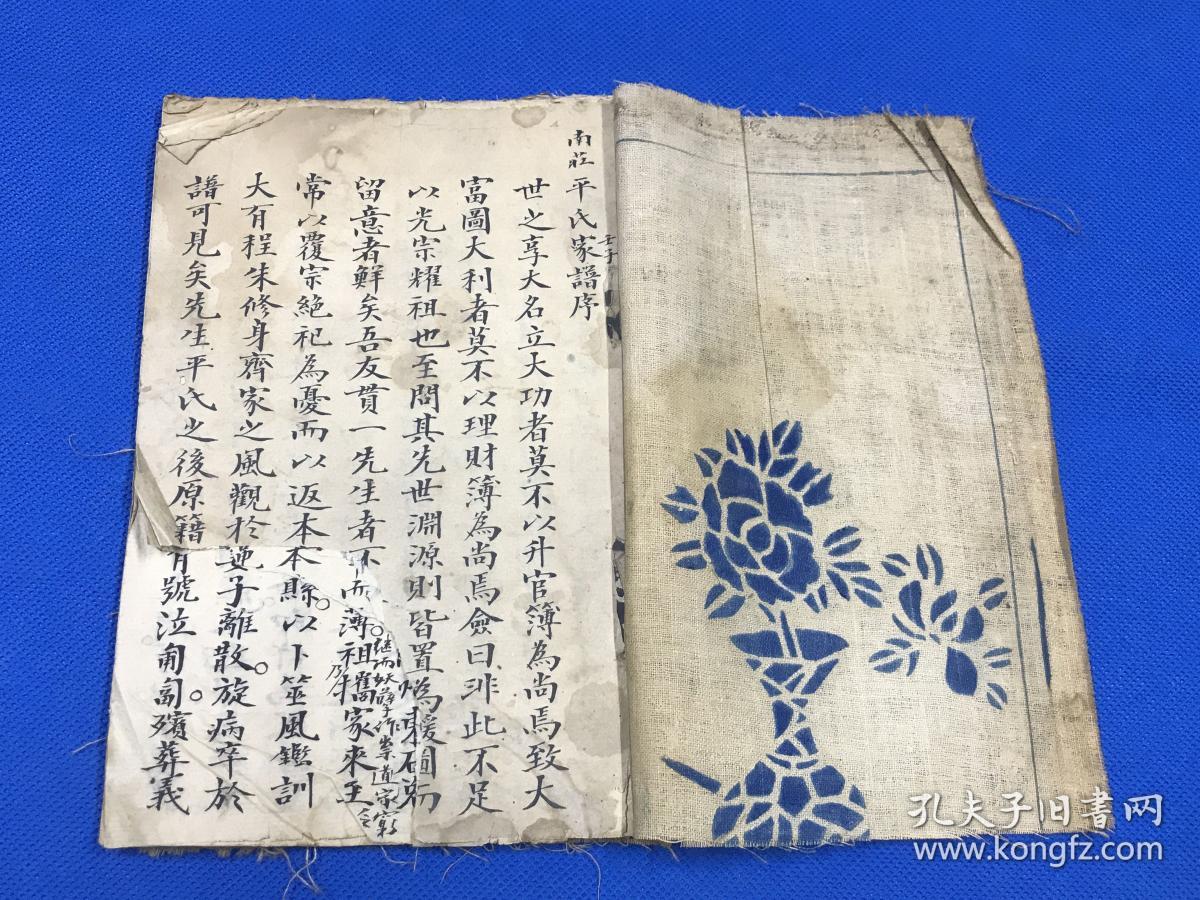 南莊平氏家譜序
壬子
世之享大名立大功者莫不以升官簿為尚焉致大
富圖大利者莫不以理財簿為尚焉僉曰非此不足
以光宗耀祖也至問其先世淵源則皆置為
留意者鮮矣吾友貫一先生者不
常以覆宗絕祀為憂而以返本
大有程朱修身齊家之風觀於
譜可見矣先生平氏之後原籍
而薄祖舊家來至
本縣以卜筮風鑑訓
子離散旋病卒於
號泣匍匐殯葬義
孔夫子旧書网
www.kongfz.com